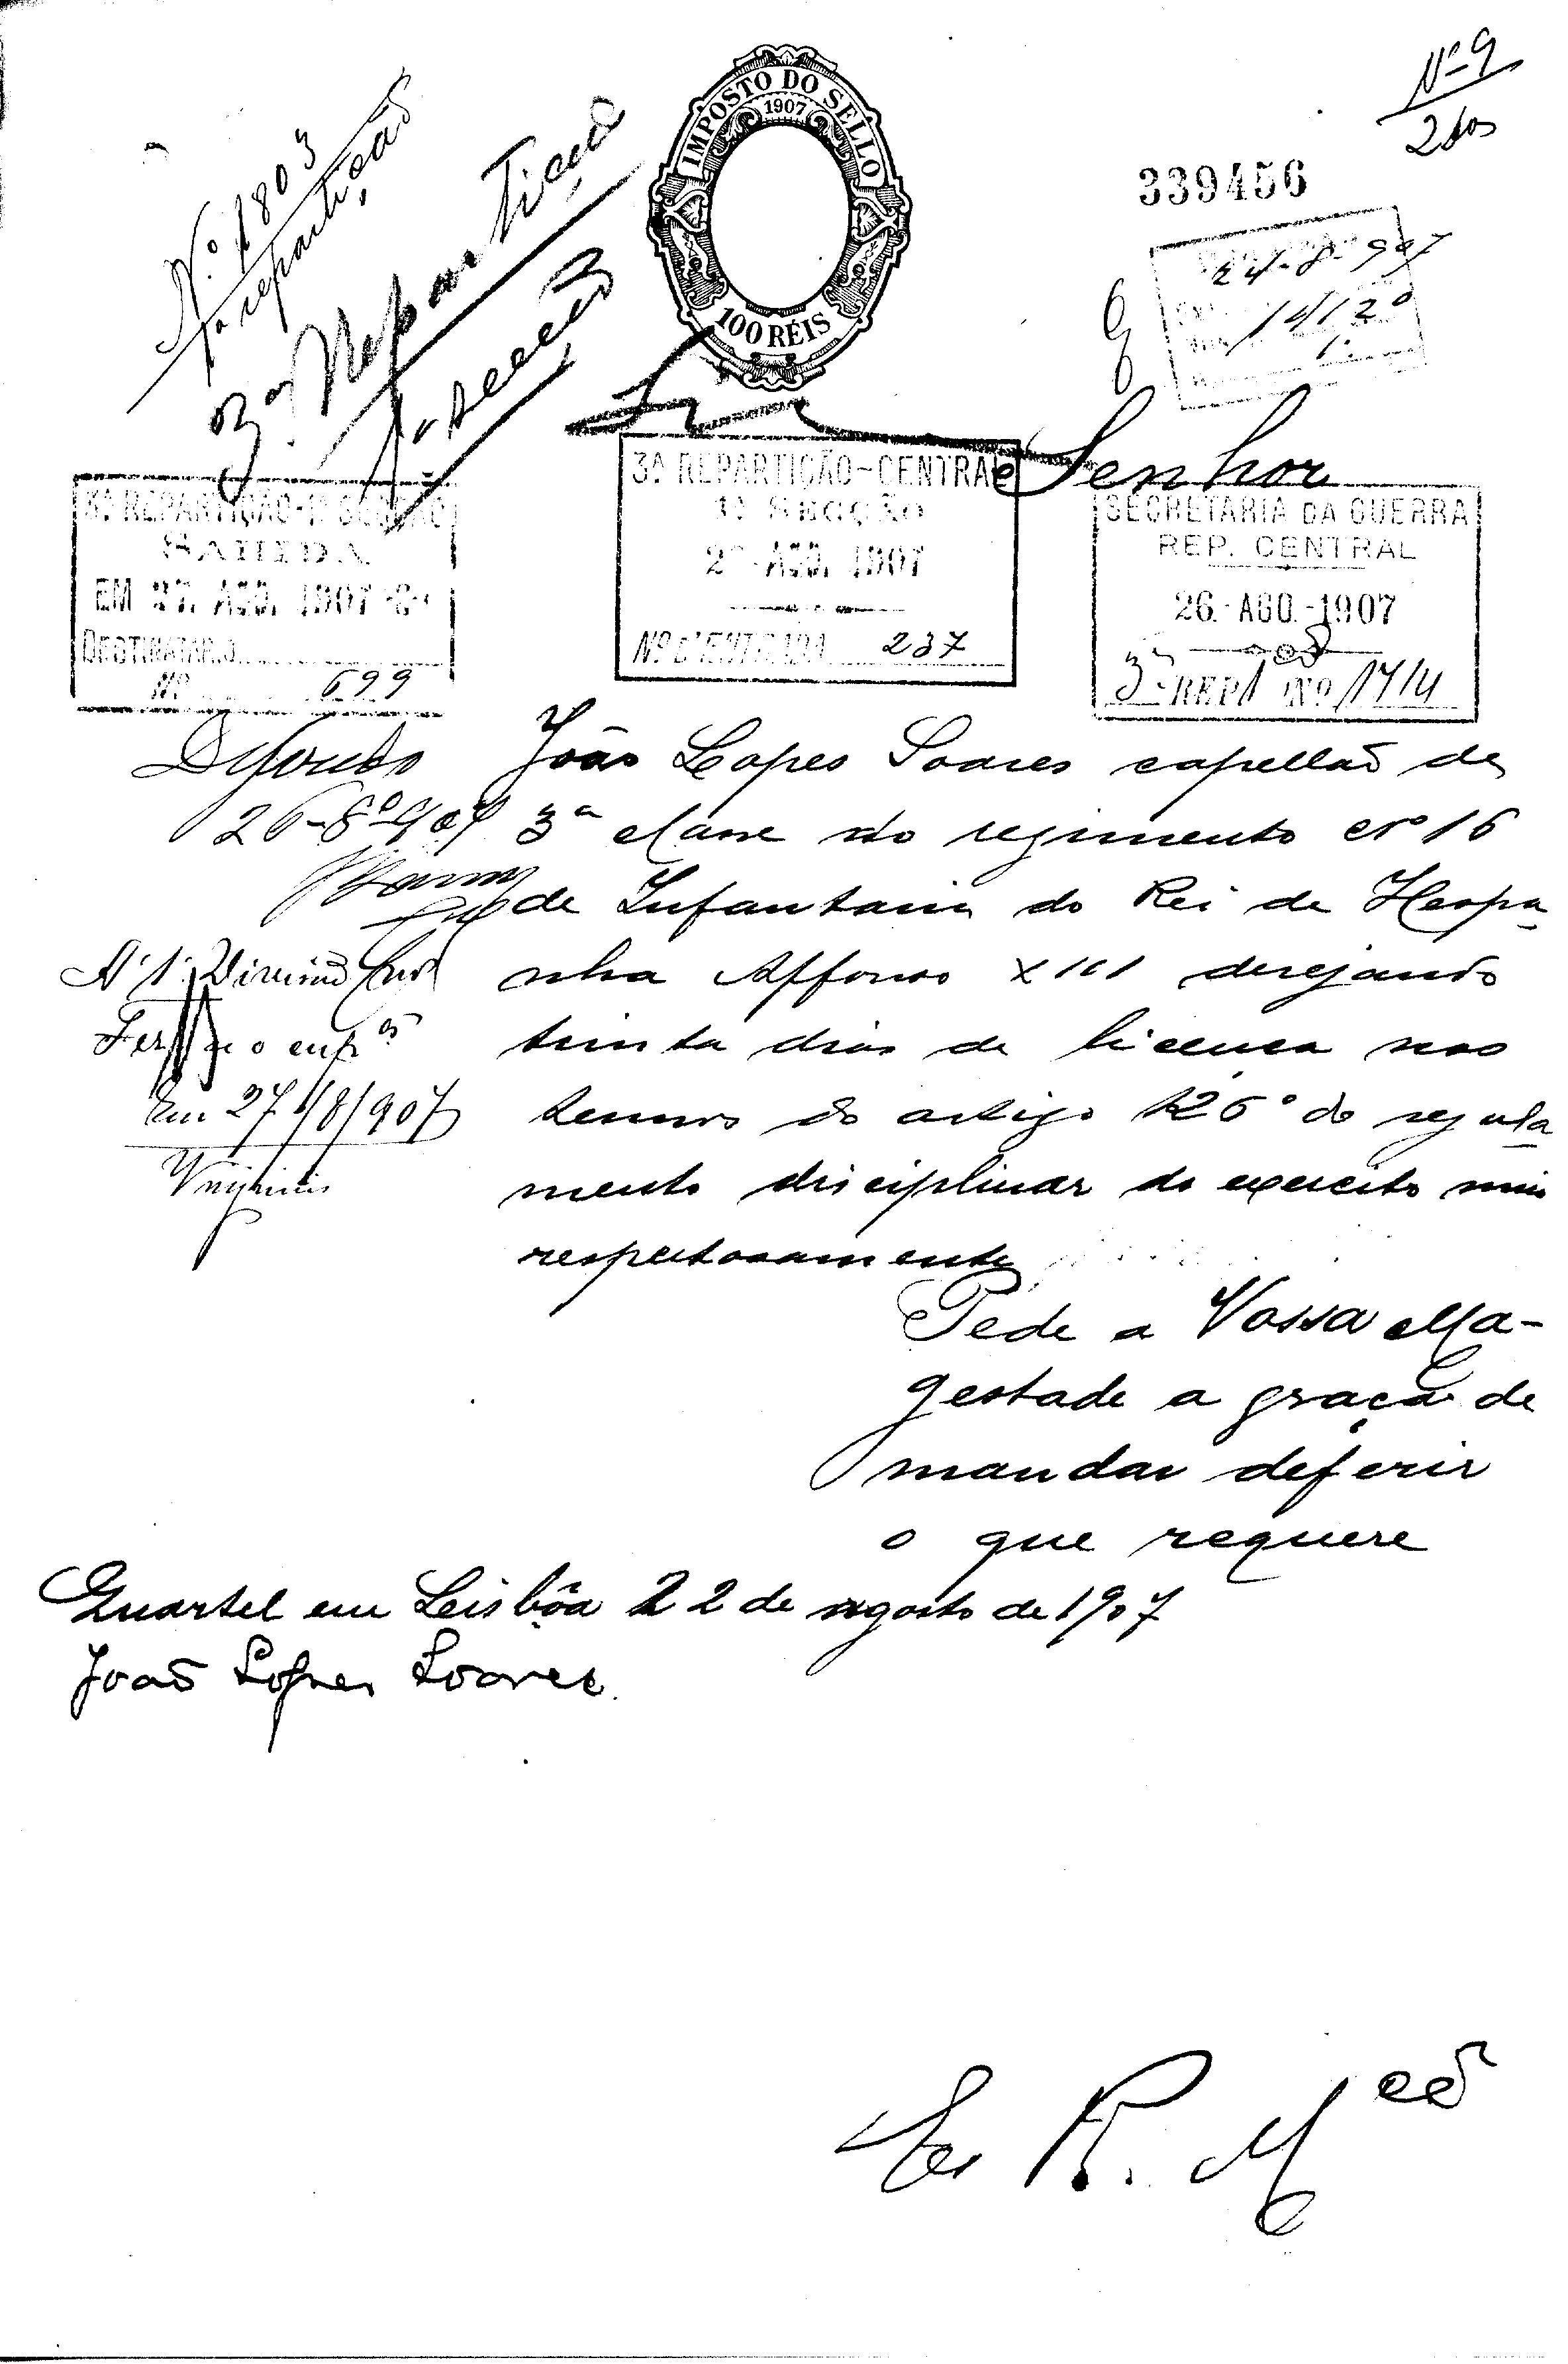 Nº 9
Nº 1803
1ª repartição
3ª Repartição
1ª Secção
IMPOSTO DO SELLO
1907
100 RÉIS
339456
24-8-907
Senhor
3ª REPARTIÇÃO-1ª SECÇÃO
SAHIDA
EM 27. AGO. 1907
DESTINATARIO
Nº 699
3ª REPARTIÇÃO-CENTRAL
1ª SECÇÃO
AGO. 1907
Nº D'ENTRADA 237
SECRETARIA DA GUERRA
REP. CENTRAL
26.-AGO.-1907
3ª REPᴬ Nº 1714
Deferido
26-8º-907
A' 1ª Divisão
Em 27/8/907
João Lopes Soares capellão de
3ª classe do regimento nº 16
de Infantaria do Rei de Hespa
nha Affonso XIII desejando
trinta dias de licença nos
termos do artigo 126º do regula
mento disciplinar do exercito mui
respeitosamente
Pede a Vossa Ma-
gestade a graça de
mandar deferir
o que requere
Quartel em Lisbôa 22 de agosto de 1907
João Lopes Soares.
E. R. Mcê